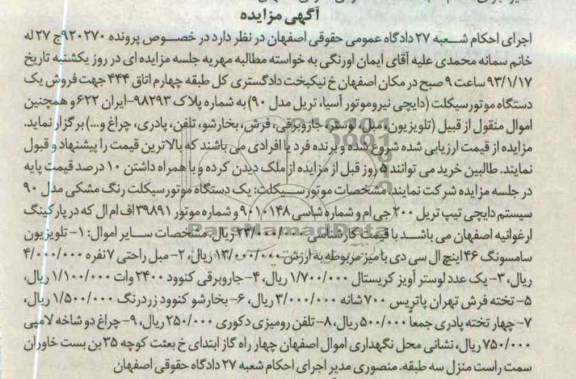 آگهی مزایده
اجرای احکام شعبه ۲۷ دادگاه عمومی حقوقی اصفهان در نظر دارد در خصوص پرونده ۹۲۰۲۷۰ج ۲۷ له
خانم سمانه محمدی علیه آقای ایمان اورنگی به خواسته مطالبه مهریه جلسه مزایده ای در روز یکشنبه تاریخ
۹۳/۱/۱۷ ساعت ۹ صبح در مکان اصفهان خ نیکبخت دادگستری کل طبقه چهارم اتاق ۴۴۴ جهت فروش یک
دستگاه موتورسیکلت (دایچی نیروموتور آسیا، تریل مدل ۹۰) به شماره پلاک ۹۸۲۹۳-ایران ۶۲۲ و همچنین
اموال منقول از قبیل (تلویزیون، مبل، لوستر، جاروبرقی، فرش، بخارشو، تلفن، پادری، چراغ و...) برگزار نماید.
مزایده از قیمت ارزیابی شده شروع شده و برنده فرد یا افرادی می باشند که بالاترین قیمت را پیشنهاد و قبول
نمایند. طالبین خرید می توانند ۵ روز قبل از مزایده از ملک دیدن کرده و با همراه داشتن ۱۰ درصد قیمت پایه
در جلسه مزایده شرکت نمایند. مشخصات موتورسیکلت: یک دستگاه موتورسیکلت رنگ مشکی مدل ۹۰
سیستم دایچی تیپ تریل ۲۰۰ جی ام و شماره شاسی ۹۰۱۰۱۴۸ و شماره موتور ۳۹۸۹۱ اف ام ال که در پارکینگ
ارغوانیه اصفهان می باشد با قیمت کارشناسی ریال، مشخصات سایر اموال: ۱- تلویزیون
سامسونگ ۴۶ اینچ ال سی دی با میز مربوطه به ارزش ۱۳/۰۰۰/۰۰۰ ریال، ۲- مبل راحتی ۷ نفره ۴/۰۰۰/۰۰۰
ریال، ۳- یک عدد لوستر آویز کریستال ۱/۷۰۰/۰۰۰ ریال، ۴- جاروبرقی کنوود ۲۴۰۰ وات ۱/۱۰۰/۰۰۰ ریال،
۵- تخته فرش تهران پاتریس ۷۰۰ شانه ۳/۰۰۰/۰۰۰ ریال، ۶- بخارشو کنوود زردرنگ ۱/۵۰۰/۰۰۰ ریال،
۷- چهار تخته پادری جمعاً ۵۰۰/۰۰۰ ریال، ۸- تلفن رومیزی دکوری ۲۵۰/۰۰۰ ریال، ۹- چراغ دو شاخه لامپی
۷۵۰/۰۰۰ ریال، نشانی محل نگهداری اموال اصفهان چهار راه گاز ابتدای خ بعثت کوچه ۳۵ بن بست خاوران
سمت راست منزل سه طبقه. منصوری مدیر اجرای احکام شعبه ۲۷ دادگاه حقوقی اصفهان